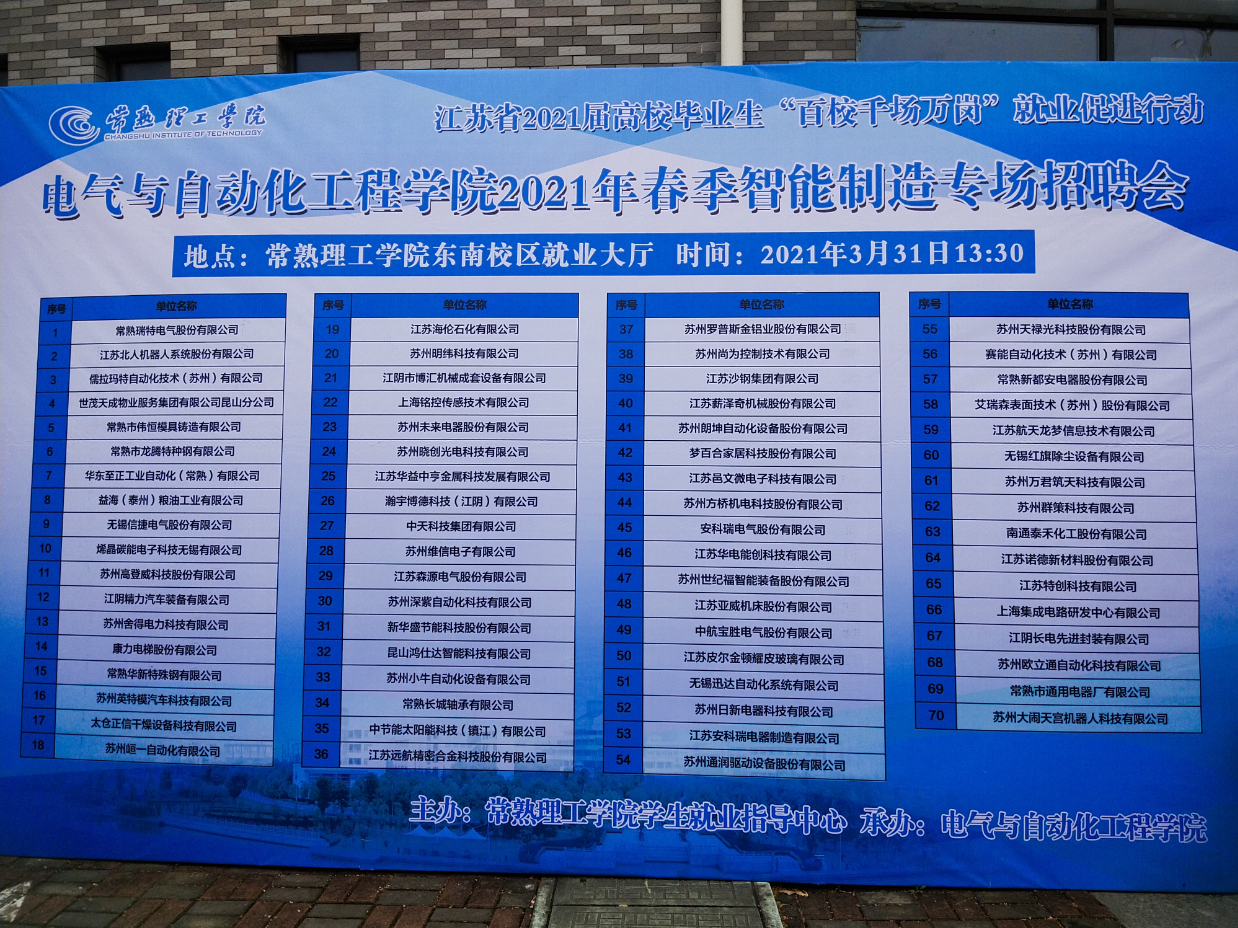 常熟理工学院
CHANGSHU INSTITUTE OF TECHNOLOGY
江苏省2021届高校毕业生“百校千场万岗”就业促进行动
电气与自动化工程学院2021年春季智能制造专场招聘会
地点：常熟理工学院东南校区就业大厅 时间：2021年3月31日13:30
序号 单位名称
1 常熟瑞特电气股份有限公司
2 江苏北人机器人系统股份有限公司
3 儒拉玛特自动化技术（苏州）有限公司
4 世茂天成物业服务集团有限公司昆山分公司
5 常熟市伟恒模具铸造有限公司
6 常熟市龙腾特种钢有限公司
7 华东至正工业自动化（常熟）有限公司
8 益海（泰州）粮油工业有限公司
9 无锡信捷电气股份有限公司
10 烯晶碳能电子科技无锡有限公司
11 苏州高登威科技股份有限公司
12 江阴精力汽车装备有限公司
13 苏州舍得电力科技有限公司
14 康力电梯股份有限公司
15 常熟华新特殊钢有限公司
16 苏州英特模汽车科技有限公司
17 太仓正信干燥设备科技有限公司
18 苏州峘一自动化有限公司
序号 单位名称
19 江苏海伦石化有限公司
20 苏州明纬科技有限公司
21 江阴市博汇机械成套设备有限公司
22 上海铭控传感技术有限公司
23 苏州未来电器股份有限公司
24 苏州晓创光电科技有限公司
25 江苏华益中亨金属科技发展有限公司
26 瀚宇博德科技（江阴）有限公司
27 中天科技集团有限公司
28 苏州维信电子有限公司
29 江苏森源电气股份有限公司
30 苏州深紫自动化科技有限公司
31 新华盛节能科技股份有限公司
32 昆山鸿仕达智能科技有限公司
33 苏州小牛自动化设备有限公司
34 常熟长城轴承有限公司
35 中节能太阳能科技（镇江）有限公司
36 江苏远航精密合金科技股份有限公司
序号 单位名称
37 苏州罗普斯金铝业股份有限公司
38 苏州尚为控制技术有限公司
39 江苏沙钢集团有限公司
40 江苏薪泽奇机械股份有限公司
41 苏州朗坤自动化设备股份有限公司
42 梦百合家居科技股份有限公司
43 江苏邑文微电子科技有限公司
44 苏州方桥机电科技股份有限公司
45 安科瑞电气股份有限公司
46 江苏华电能创科技有限公司
47 苏州世纪福智能装备股份有限公司
48 江苏亚威机床股份有限公司
49 中航宝胜电气股份有限公司
50 江苏皮尔金顿耀皮玻璃有限公司
51 无锡迅达自动化系统有限公司
52 苏州日新电器科技有限公司
53 江苏安科瑞电器制造有限公司
54 苏州通润驱动设备股份有限公司
序号 单位名称
55 苏州天禄光科技股份有限公司
56 赛能自动化技术（苏州）有限公司
57 常熟新都安电器股份有限公司
58 艾瑞森表面技术（苏州）股份有限公司
59 江苏航天龙梦信息技术有限公司
60 无锡红旗除尘设备有限公司
61 苏州万君筑天科技有限公司
62 苏州群策科技有限公司
63 南通泰禾化工股份有限公司
64 江苏诺德新材料股份有限公司
65 江苏特创科技有限公司
66 上海集成电路研发中心有限公司
67 江阴长电先进封装有限公司
68 苏州欧立通自动化科技有限公司
69 常熟市通用电器厂有限公司
70 苏州大闹天宫机器人科技有限公司
主办：常熟理工学院学生就业指导中心 承办：电气与自动化工程学院